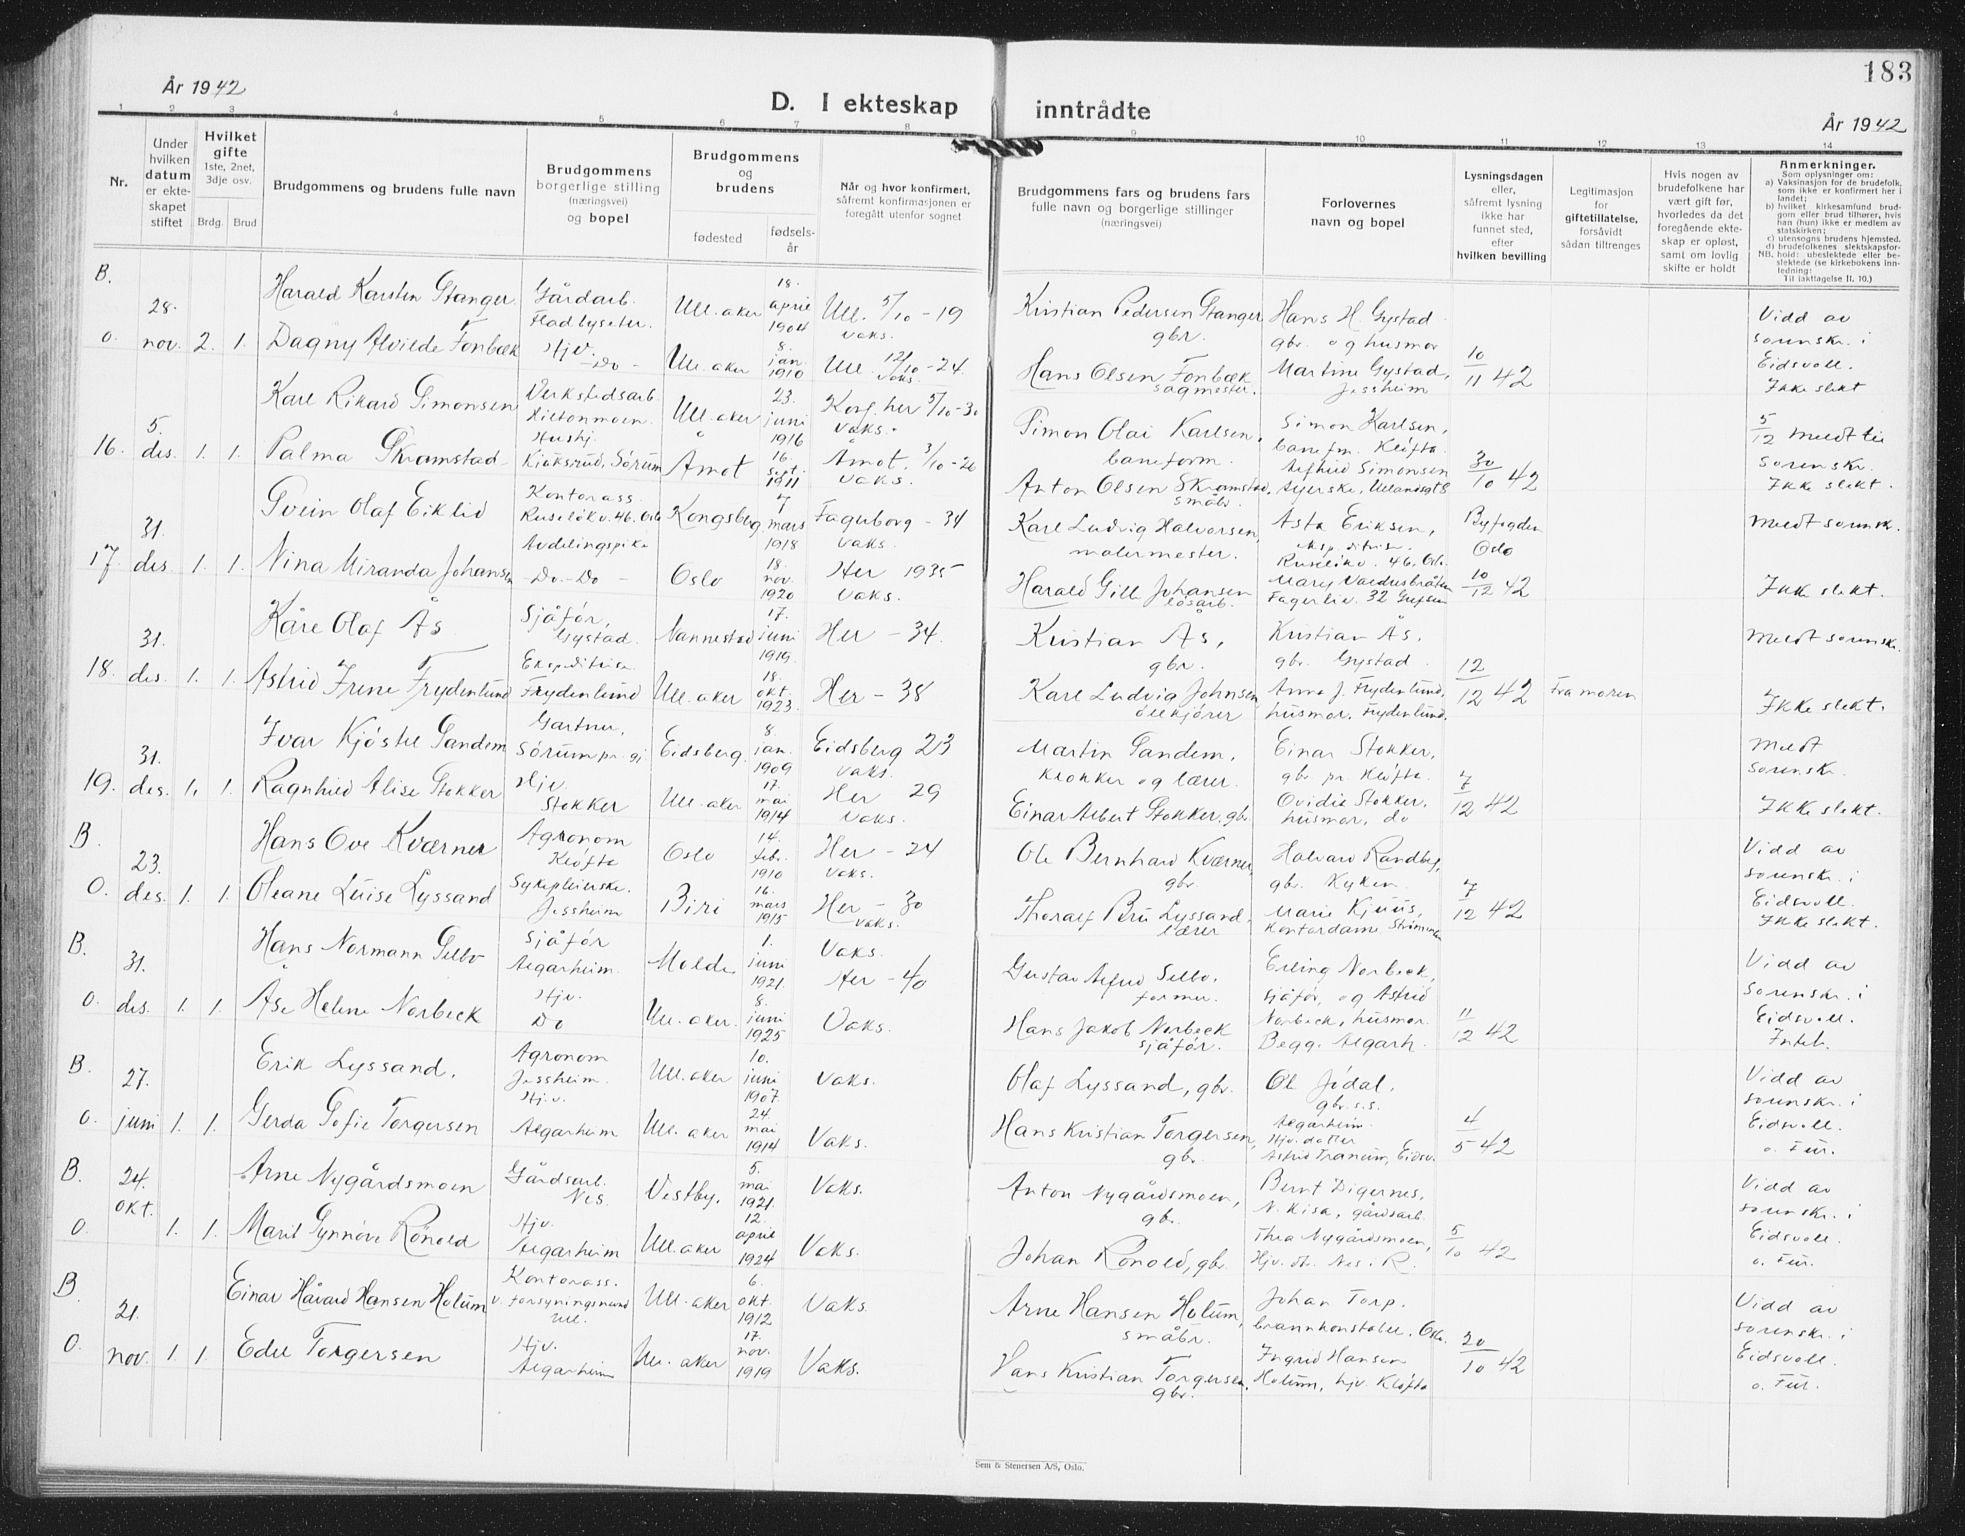 183
År 1942
D. I ekteskap inntrådte
År 1942
1 2 3 4 5 6 7 8 9 10 11 12 13 14
Nr.
Under hvilken datum er ekteskapet stiftet
Hvilket gifte 1ste, 2net, 3dje osv.
Brdg. Brud
Brudgommens og brudens fulle navn
Brudgommens borgerlige stilling (næringsvei) og bopel
Brudgommens og brudens
fødested
fødselsår
Når og hvor konfirmert, såfremt konfirmasjonen er foregått utenfor sognet
Brudgommens fars og brudens fars fulle navn og borgerlige stillinger (næringsvei)
Forlovernes navn og bopel
Lysningsdagen eller, såfremt lysning ikke har funnet sted, efter hvilken bevilling
Legitimasjon for giftetillatelse, forsåvidt sådan tiltrenges
Hvis nogen av brudefolkene har vært gift før, hvorledes da det foregående ekteskap er opløst, samt om lovlig skifte er holdt
Anmerkninger.
Som oplysninger om:
a) Vaksinasjon for de brudefolk, som ikke er konfirmert her i landet;
b) hvilket kirkesamfund brudgom eller brud tilhører, hvis han (hun) ikke er medlem av statskirken;
c) utensogns brudens hjemsted.
d) brudefolkenes slektskapsforhold: ubeslektede eller beslektede (se kirkebokens innledning:
NB. Til iakttagelse II. 10.)
B. 28. Harald Karsten Stanger Gårdarb. Fladbyseter. Ull.aker 18. april 1904 Ull. 5/10 - 19 vaks. Kristian Pedersen Stanger gbr. Hans H. Gystad gbr. og husmor Vidd av sorenskr. i
o. nov. 2. 1. Dagny Alvilde Fonbæk Hjv. - Do - Ull.aker 8. jan. 1910 Ull. 12/10 - 24. Vaks. Hans Olsen Fonbæk sagmester. Martine Gystad, Jessheim 10/11 42 Eidsvoll. Ikke slekt
Karl Rikard Simonsen Verkstedsarb. Hiltonmoen. Ull.aker 23. juni 1916 Konf. her 5/10-30 Vaks. Simon Olai Karlsen, baneform. Simon Karlsen, banefm. Kløfta. 5/12 meldt til
16. 5. des. 1. 1. Palma Skramstad Hushj. Kjoksrud, Sørum Åmot 16. sept. 1911 Åmot. 3/10-26 Vaks. Anton Olsen Skramstad, småbr. Alfhild Simonsen 30/10 42 sorenskr. Ikke slekt.
Svein Olaf Eiklid Kontorass. Ruseløkv. 46. Oslo Kongsberg 7 mars 1918 Fagerborg - 34 Vaks. Karl Ludvig Halvorsen, malermester. Asta Eriksen, Ruseløkv. 46. Oslo. Byfogden Oslo Meldt sorensk.
17. 31. des. 1. 1. Nina Miranda Johansen Avdelingspike - Do - Do - Oslo 18. nov. 1920 Her 1935 Vaks. Harald Gill Johansen løsarb. Mary Valdresbråten Fagerliv. 32 Grefsen 10/12 42 Ikke slekt.
Kåre Olaf Ås Sjåfør, Gystad. Nannestad 17. juni 1919. Her - 34. Kristian Ås, gbr. Kristian Ås, gbr. Gystad. Meldt sorensk.
18. 31. des. 1. 1. Astrid Irene Frydenlund Ekspeditrise Frydenlund Ull.aker 18. okt. 1923. Her - 38 Karl Ludvig Johnsen, ølkjører Anna J. Frydenlund, husmor. Frydenlund. 12/12 42 Fra moren Ikke slekt.
Ivar Kjøstel Sandem Gartner, Sørum pr. gj Eidsberg 8. jan. 1909 Eidsberg 23 vaks. Martin Sandem, klokker og lærer. Einar Stokker, gbr. pr. Kløfta. Meldt sorenskr.
19. 31. des. 1. 1. Ragnhild Alise Stokker Hjv. Stokker Ull.aker 17. mai 1914 Her 29 Vaks. Einar Albert Stokker, gbr. Ovidie Stokker, husmor, do 7/12 42 Ikke slekt.
B. 23. Hans Ove Kværner Agronom Kløfta Oslo 14. febr. 1910 Her - 24 Vaks. Ole Bernhard Kværner, gbr Halvard Randby, gbr. Kyken. Vidd av sorenskr. i
O. des. 1. 1. Oleane Luise Lyssand Sykepleierske. Jessheim Biri 16. mars 1915 Her - 30 Vaks. Thoralf Bru Lyssand, lærer Marie Kjuus, Kontordame 7/12 42 Eidsvoll. Ikke slekt.
B. 31. Hans Normann Selbo Sjåfør Algarheim. Molde 1. juni 1921. Vaks. Her - 40 Gustav Alfred Selbo, former. Erling Norbeck, sjåfør, og Astrid Vidd av sorenskr. i
O. des. 1. 1. Åse Helene Norbeck Hjv. Do Ull.aker. 8. juni 1925 Vaks. Hans Jakob Norbeck sjåfør. Norbeck, husmor. Begge Algarh. 11/12 42 Eidsvoll.
B. 27. Erik Lyssand. Agronom Jessheim. Ull.aker 10. juni 1907 Vaks. Olaf Lyssand, gbr. Ole Jødal, gbr. s.s. Vidd av sorenskr. i
o. juni 1. 1. Gerda Sofie Torgersen Hj.v. Algarheim Ull.aker 24. mai 1914 Vaks. Hans Kristian Torgersen, gbr. Algarheim. Hjv. datter Astrid Tranum, Eidsv. 4/5 42 Eidsvoll. o. Ful.
B. 24. okt. Arne Nygårdsmoen Gårdsarb. Nes Vestby. 5. mai 1921. Vaks. Anton Nygårdsmoen, gbr. Bernt Digernes, N. Kisa, gårdsarb. Vidd av sorenskr. i
O. 1. 1. Marit Synnøve Rönold Hjv. Algarheim Ull.aker 12. april 1924 Vaks. Johan Rönold, gbr. Thea Nygårdsmoen, Hjv. Nes. R. 5/10 42 Eidsvoll. o. Ful.
B. 21. Einar Håvard Hansen Holum Kontorass. v. forsyningsnemd Ull. Ull.aker 6. okt. 1912 Vaks. Arne Hansen Holum, småbr. Johan Torp. brannkonstabel. Oslo. Vidd av sorenskr. i
O. nov. 1. 1. Edel Torgersen Hjv. Algarheim Ull.aker 17. nov. 1919 Vaks. Hans Kristian Torgersen, gbr. Ingrid Hansen Holum, hjv. Kløfta 20/10 42 Eidsvoll. o. Ful.
Sem & Stenersen A/S, Oslo.